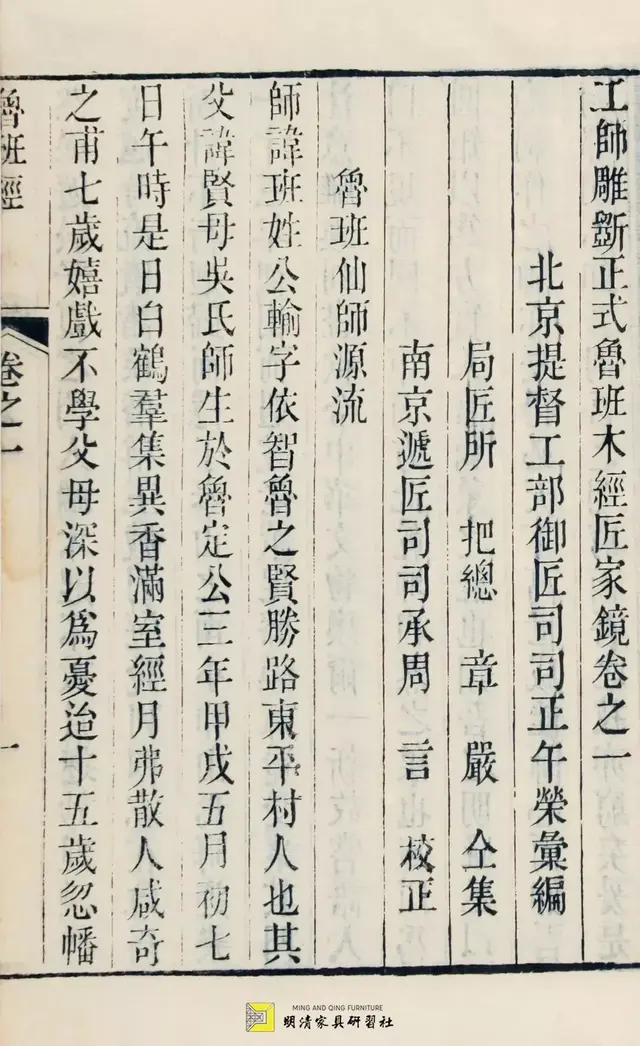 工師雕斲正式魯班木經匠家鏡卷之一
北京提督工部御匠司司正午榮彙編
局匠所 把總 章 嚴 仝集
南京遞匠司司承周 言 校正
魯班仙師源流
師諱班姓公輸字依智魯之賢勝路東平村人也其
父諱賢母吳氏師生於魯定公三年甲戌五月初七
日午時是日白鶴羣集異香滿室經月弗散人咸奇
之甫七歲嬉戲不學父母深以爲憂迨十五歲忽幡
魯班經 卷之一 一
MING AND QING FURNITURE
明清家具研習社